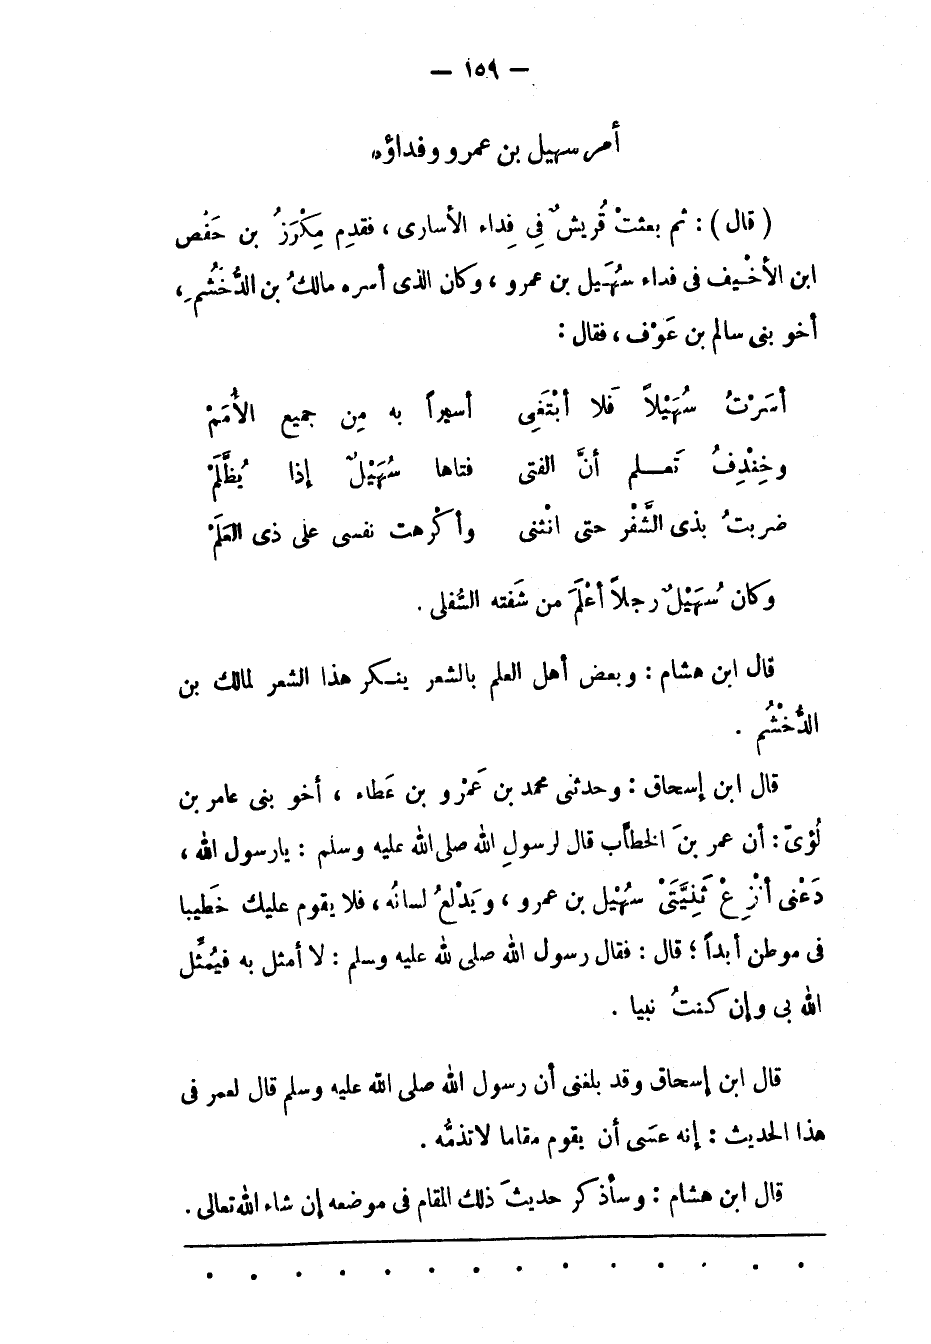 — ١٥٩ —
أمر سهيل بن عمرو وفداؤه
( قال ) : ثم بعثتْ قُريشٌ فِى فِداء الأسارى ، فقدِم مِكْرَزُ بن حَفْص
ابن الأخْيف فى فداء سُهَيل بن عمرو ، وكان الذى أسره مالكُ بن الدُّخْشُمِ ،
أخو بنى سالم بن عَوْف ، فقال :
أسَرْتُ سُهَيْلاً فَلا أبْتَغِى أسيراً به مِن جميع الأُمَمْ
وخِنْدِفُ تَعـلم أنَّ الفتى فتاها سُهَيْلٌ إذا يُظَّلَمْ
ضربتُ بذى الشَّفْر حتى انْثنى وأكْرهت نفسى على ذى العَلَمْ
وكان سُهَيْلٌ رجلاً أعْلَمَ من شَفته السُّفلى .
قال ابن هشام : وبعض أهل العلم بالشعر ينـكر هذا الشعر لمالك بن
الدُّخْشُم .
قال ابن إسحاق : وحدثنى محمد بن عَمْرو بن عَطاء ، أخو بنى عامر بن
لُؤىّ : أن عمر بنَ الخطاَّب قال لرسولِ الله صلى الله عليه وسلم : يارسول الله ،
دَعْنى أنْزِعْ ثَنِيَّتَىْ سُهَيْل بن عمرو ، ويَدْلعُ لسانُه ، فلا يقوم عليك خَطيبا
فى موطن أبداً ؛ قال : فقال رسول الله صلى لله عليه وسلم : لا أمثل به فيُمثِّل
الله بى وإن كنتُ نبيا .
قال ابن إسحاق وقد بلغنى أن رسول الله صلى الله عليه وسلم قال لعمر فى
هذا الحديث : إنه عسَى أن يقوم مقاما لاتذمُّه .
قال ابن هشام : وسأذكر حديثَ ذلك المقام فى موضعه إن شاء الله تعالى .